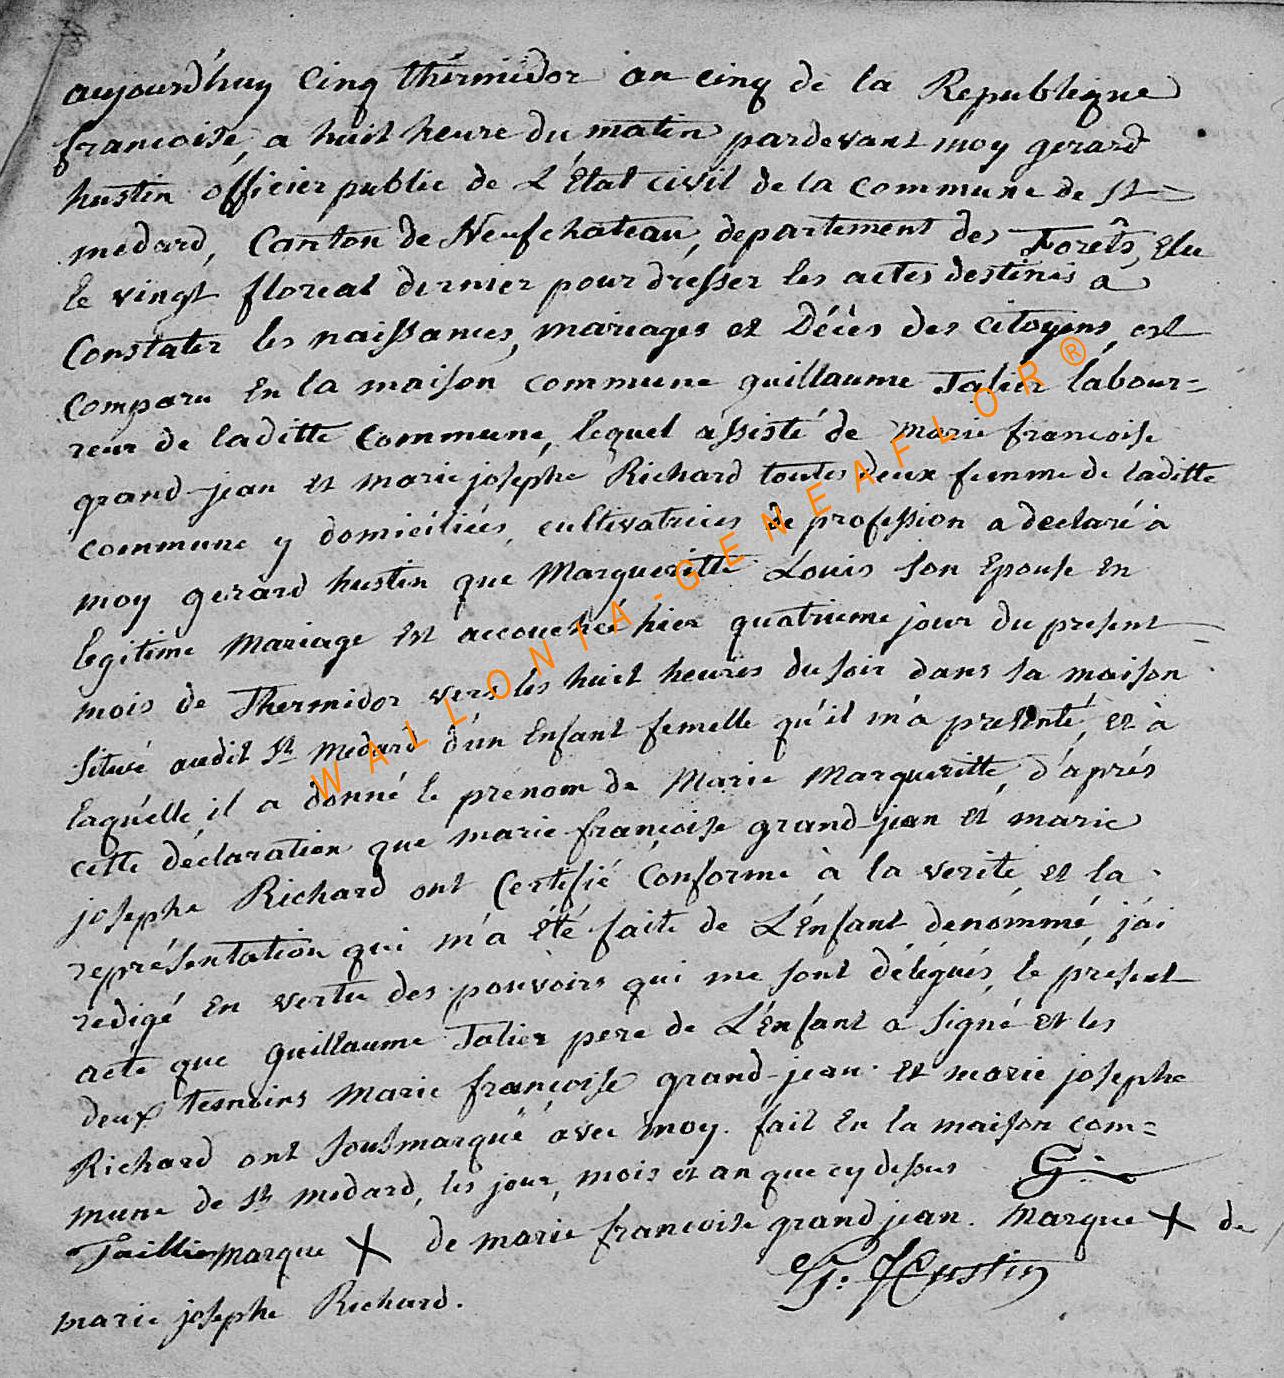 aujourd'huy cinq thérmidor an cinq de la Republique
francoise, a huit heure du matin pardevant moy gerard
hustin officier public de L'État civil de la commune de st=
medard, Canton de Neufchateau, departement des Forêts, Elu
le vingt floreal dernier pour drésser les actes destinés à
Constater les naissances, mariages et Décès des citoyens, est
comparu En la maison commune guillaume Talier labour=
reur de laditte Commune, lequel assisté de Marie francoise
grand-jean et marie josephe Richard toutes deux femme de laditte
commune y domiciliées, cultivatrices de profession a declaré à
moy gerard hustin que Margueritte Louis son Epouse En
legitime Mariage Est accouchée hier quatrieme jour du present
mois de Thermidor vers les huit heures du soir dans sa maison
Située audit St Medard d'un Enfant femelle qu'il m'a présenté, et à
laquélle il a donné le prénom de Marie Margueritte, d'aprés
cette déclaration que marie françoise grand-jean et marie
josephe Richard ont Certifié Conforme à la verité et la
représentation qui m'a été faite de L'Enfant denommé, j'ai
redigé En vertu des pouvoirs qui me sont délégués, le présent
acte que Guillaume Talier pere de L'Enfant a signé et les
deux tesmoins Marie françoise grand-jean et marie josephe
Richard ont sousmarqué avec moy. fait En la maison com=
mune de St medard, les jour, mois et an que cy dessus G:
Taillier marque X de marie francoise grand jean. Marque X de
G: Hustin
marie josephe Richard.
WALLONIA-GENEAFLOR®